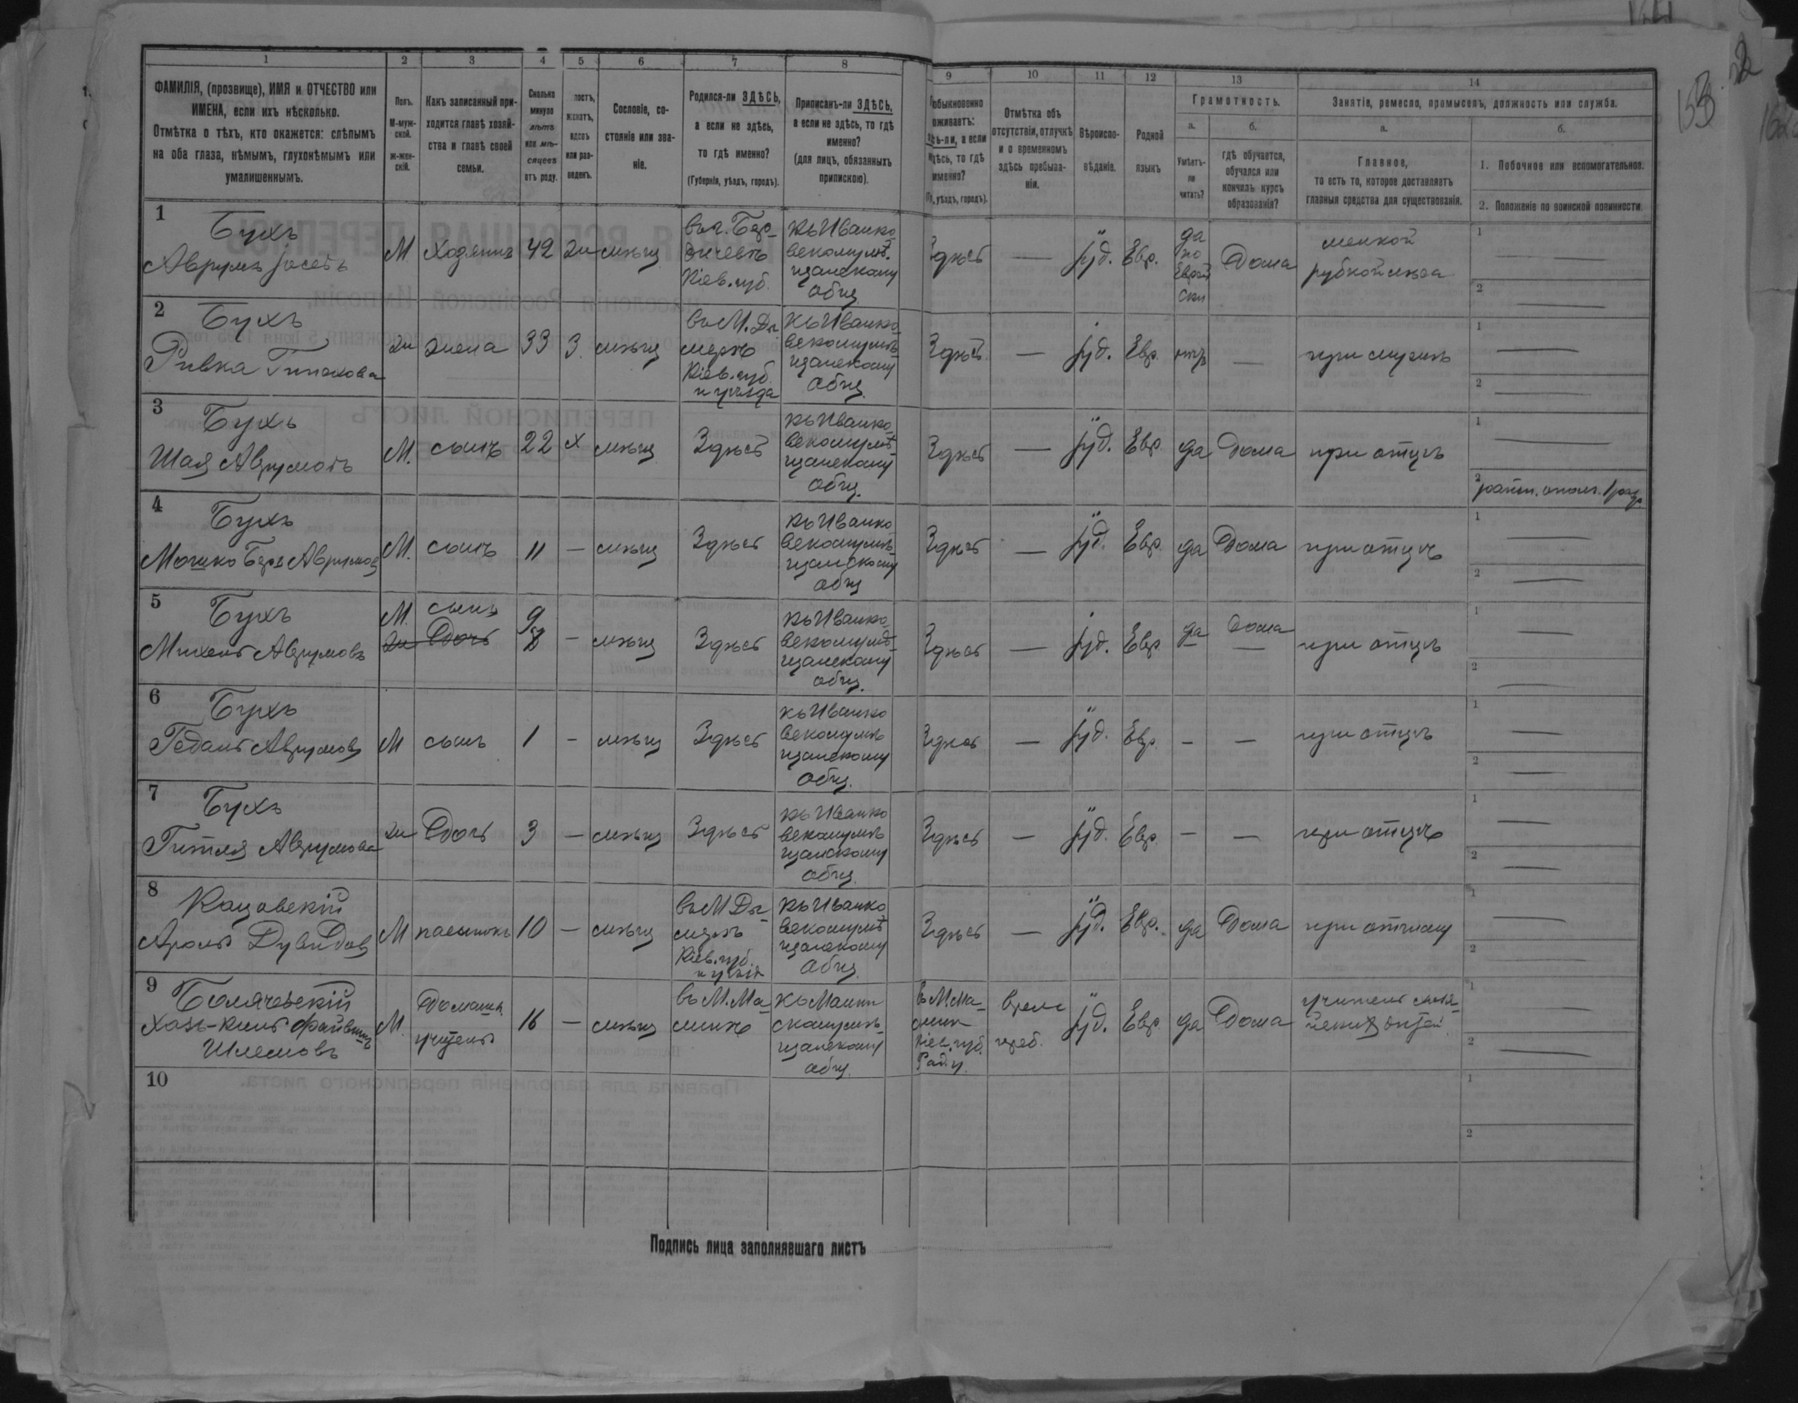 1 2 3 4 5 6 7 8 9 10 11 12 13 14
ФАМИЛІЯ, (прозвище), ИМЯ и ОТЧЕСТВО или
ИМЕНА, если ихъ нѣсколько.
Отмѣтка о тѣхъ, кто окажется: слѣпымъ
на оба глаза, нѣмымъ, глухонѣмымъ или
умалишеннымъ.
Полъ.
М-муж-
ской.
ж-жен-
скій.
Какъ записанный при-
ходится главѣ хозяй-
ства и главѣ своей
семьи.
Сколько
минуло
лѣтъ
или мѣ-
сяцевъ
отъ роду.
Сословіе, со-
стояніе или зва-
ніе.
Родился-ли ЗДѢСЬ,
а если не здѣсь,
то гдѣ именно?
(Губернія, уѣздъ, городъ).
Приписанъ-ли ЗДѢСЬ,
а если не здѣсь, то гдѣ
именно?
(для лицъ, обязанныхъ
припискою).
Отмѣтка объ
отсутствіи, отлучкѣ
и о временномъ
здѣсь пребыва-
ніи.
Вѣроиспо-
вѣданіе.
Родной
языкъ
Грамотность.
а.
Умѣетъ-
ли
читать?
б.
гдѣ обучается,
обучался или
кончилъ курсъ
образованія?
Занятіе, ремесло, промыселъ, должность или служба.
а.
Главное,
то есть то, которое доставляетъ
главныя средства для существованія.
б.
1. Побочное или вспомогательное.
2. Положеніе по воинской повинности
1
Бухъ
Аврумъ Іосевъ
М
хозяинъ
42
жн
мѣщ
въ г. Бер-
дичевѣ
Кіев. губ.
къ Иванко
вскому мѣ
щанскому
общ.
Здѣсь
—
Іуд.
Евр.
да
по
Дома
мелкой
рубкой мяса
2
Бухъ
Ривка
жн
жена
33
З.
мѣщ
въ М. Ды
мерѣ
Кіев. губ
и уѣзда
къ Иванко
вскому мѣ
щанскому
общ.
Здѣсь
—
Іуд.
Евр.
нѣтъ
—
при мужѣ
3
Бухъ
Шая Аврумовъ
М.
сынъ
22
х
мѣщ
Здѣсь
къ Иванко
вскому мѣ
щанскому
общ.
Здѣсь
—
Іуд.
Евр.
да
Дома
при отцѣ
4
Бухъ
Мошко Беръ Аврумовъ
М.
сынъ
11
—
мѣщ
Здѣсь
къ Иванко
вскому мѣ
щанскому
общ
Здѣсь
—
Іуд.
Евр.
да
Дома
при отцѣ
5
Бухъ
Михель Аврумовъ
М.
жн
сынъ
Дочь
9
8
—
мѣщ
Здѣсь
къ Иванко
вскому мѣ
щанскому
общ.
Здѣсь
—
Іуд.
Евр
да
Дома
при отцѣ
6
Бухъ
Гедаль Аврумовъ
М
сынъ
1
—
мѣщ
Здѣсь
къ Иванко
вскому мѣ
щанскому
общ.
Здѣсь
—
Іуд.
Евр.
—
—
при отцѣ
7
Бухъ
Гитля Аврумова
жн
Дочь
3
—
мѣщ
Здѣсь
къ Иванко
вскому мѣ
щанскому
общ.
Здѣсь
—
Іуд.
Евр.
—
—
при отцѣ
8
Аронъ Дувидовъ
М
пасынокъ
10
—
мѣщ
въ М Ды-
мерѣ
Кіев. губ.
къ Иванко
вскому мѣ
щанскому
общ.
Здѣсь
—
Іуд.
Евр.
да
Дома
при отчиму
9
Шлемовъ
М.
Домашн
учитель
16
—
мѣщ
въ М. Ма-
линѣ
къ Малин
скому мѣ
щанскому
общ.
въ М Ма-
линѣ
Кіев. губ.
Рад у.
врем
преб.
Іуд.
Евр
да
Дома
учитель
10
Подпись лица заполнявшаго листъ